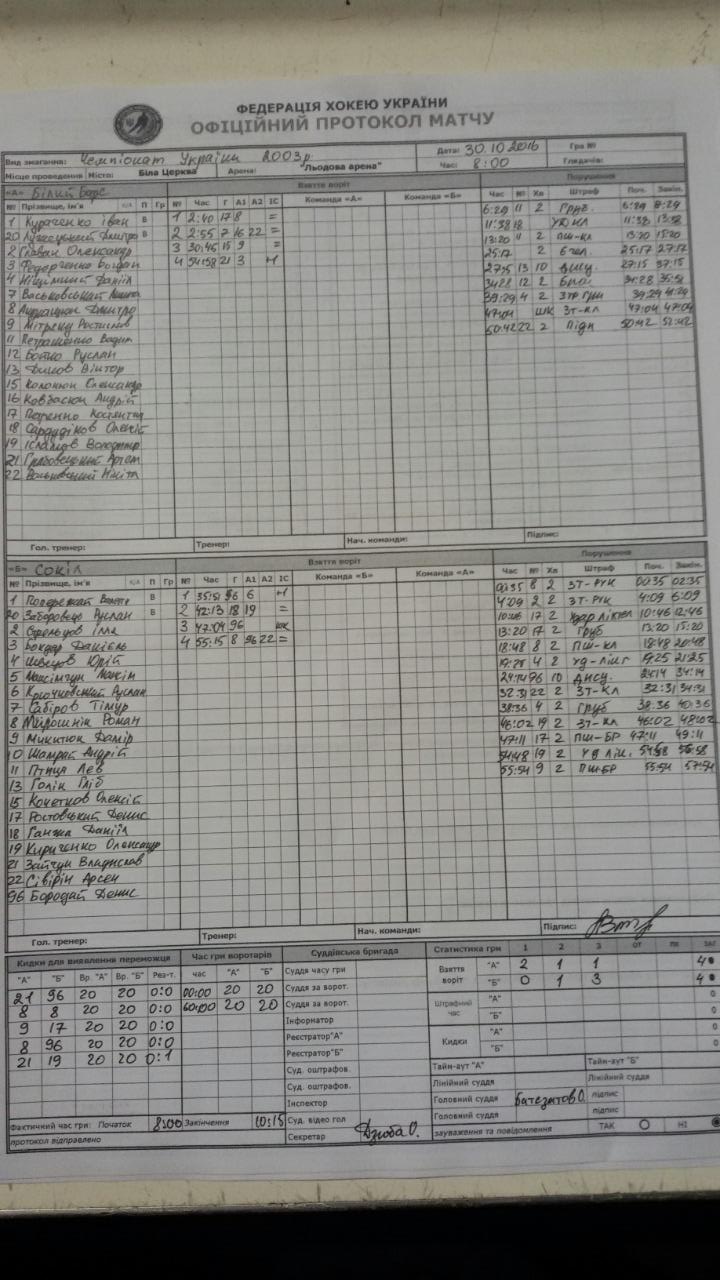 ФЕДЕРАЦІЯ ХОКЕЮ УКРАЇНИ
ОФІЦІЙНИЙ ПРОТОКОЛ МАТЧУ
Вид змагання: Чемпіонат України 2003р. Дата: 30.10.2016 Гра №
Місце проведення Місто: Біла Церква Арена: "Льодова арена" Час: 8:00 Глядачів:
«А» Білий Барс Взяття воріт Порушення
№ Прізвище, ім'я К/А П Гр № Час Г А1 А2 ІС Команда «А» Команда «Б» Час № Хв Штраф Поч. Закін.
1 Іван В 1 2:40 17 8 = 6:29 11 2 Груб. 6:29 8:29
20 Дмитро В 2 2:55 2 16 22 = 11:38 18
2 Главан Олександр 3 30:46 15 9 = 13:20 11 2 ПШ-КЛ 13:20 15:20
3 Федорченко Богдан 4 54:58 21 3 +1 25:17 2 25:17 27:17
4 Даніїл 27:15 13 10 Дисц. 27:15 37:15
7 Васьковський 34:28 12 2
8 Дмитро 39:29 4 2 39:29 41:29
9 Ростислав 47:04 ШК ЗТ-КЛ 47:04 47:04
11 Петрашенко Вадим 50:42 22 2 Підн 50:42 52:42
12 Бойко Руслан
13 Віктор
15 Олександр
16 Ковбасюк Андрій
17 Костянтин
18 Олексій
19 Ісламов Володимир
21 Грабовецький Артем
22 Нікіта
Гол. тренер: Тренер: Нач. команди: Підпис:
«Б» Сокіл Взяття воріт Порушення
№ Прізвище, ім'я К/А П Гр № Час Г А1 А2 ІС Команда «Б» Команда «А» Час № Хв Штраф Поч. Закін.
1 В 1 35:51 96 6 +1 00:35 8 2 ЗТ-РУК 00:35 02:35
20 Заборовець Руслан В 2 42:13 18 19 = 4:09 2 2 ЗТ-РУК 4:09 6:09
2 Стрельцов Ілля 3 47:04 96 ШК 10:46 17 2 Удар Ліктем 10:46 12:46
3 Бондар Даніель 4 55:15 8 96 22 = 13:20 17 2 Груб 13:20 15:20
4 Швецов Юрій 18:48 8 2 ПШ-КЛ 18:48 20:48
5 Максимчук Максім 19:25 4 2 19:25 21:25
6 Крючковський Руслан 24:14 96 10 Дисц. 24:14 34:14
7 Сабіров Тімур 32:31 22 2 ЗТ-КЛ 32:31 34:31
8 Мирошнік Роман 38:36 4 2 Груб 38:36 40:36
9 Микитюк Дамір 46:02 19 2 ЗТ-КЛ 46:02 48:02
10 Шамрай Андрій 47:11 17 2 ПШ-БР 47:11 49:11
11 Птиця Лев 19 2
13 Голік Гліб 55:54 9 2 ПШ-БР 55:54 57:54
15 Кочетков Олексій
17 Ростовський Денис
18 Ганжа Даніїл
19 Кириченко Олександр
21 Зайчук Владислав
22 Сівірін Арсен
96 Бородай Денис
Гол. тренер: Тренер: Нач. команди: Підпис:
Кидки для виявлення переможця Час гри воротарів Суддівська бригада Статистика гри 1 2 3 ОТ ПБ ЗАГ
"А" "Б" Вр. "А" Вр. "Б" Рез-т. час "А" "Б" Суддя часу гри Взяття воріт "А" 2 1 1 4
21 96 20 20 0:0 00:00 20 20 Суддя за ворот. "Б" 0 1 3 4
8 8 20 20 0:0 60:00 20 20 Суддя за ворот. Штрафний час "А" 0
9 17 20 20 0:0 Інформатор "Б" 0
8 96 20 20 0:0 Реєстратор"А" Кидки "А" 0
21 19 20 20 0:1 Реєстратор"Б" "Б" 0
Суд. оштрафов. Тайм-аут "А" Тайм-аут "Б"
Суд. оштрафов. Лінійний суддя Лінійний суддя
Інспектор Головний суддя підпис
Фактичний час гри: Початок 8:00 Закінчення 10:15 Суд. відео гол Головний суддя підпис
протокол відправлено Секретар Дзюба О. зауваження та повідомлення ТАК НІ